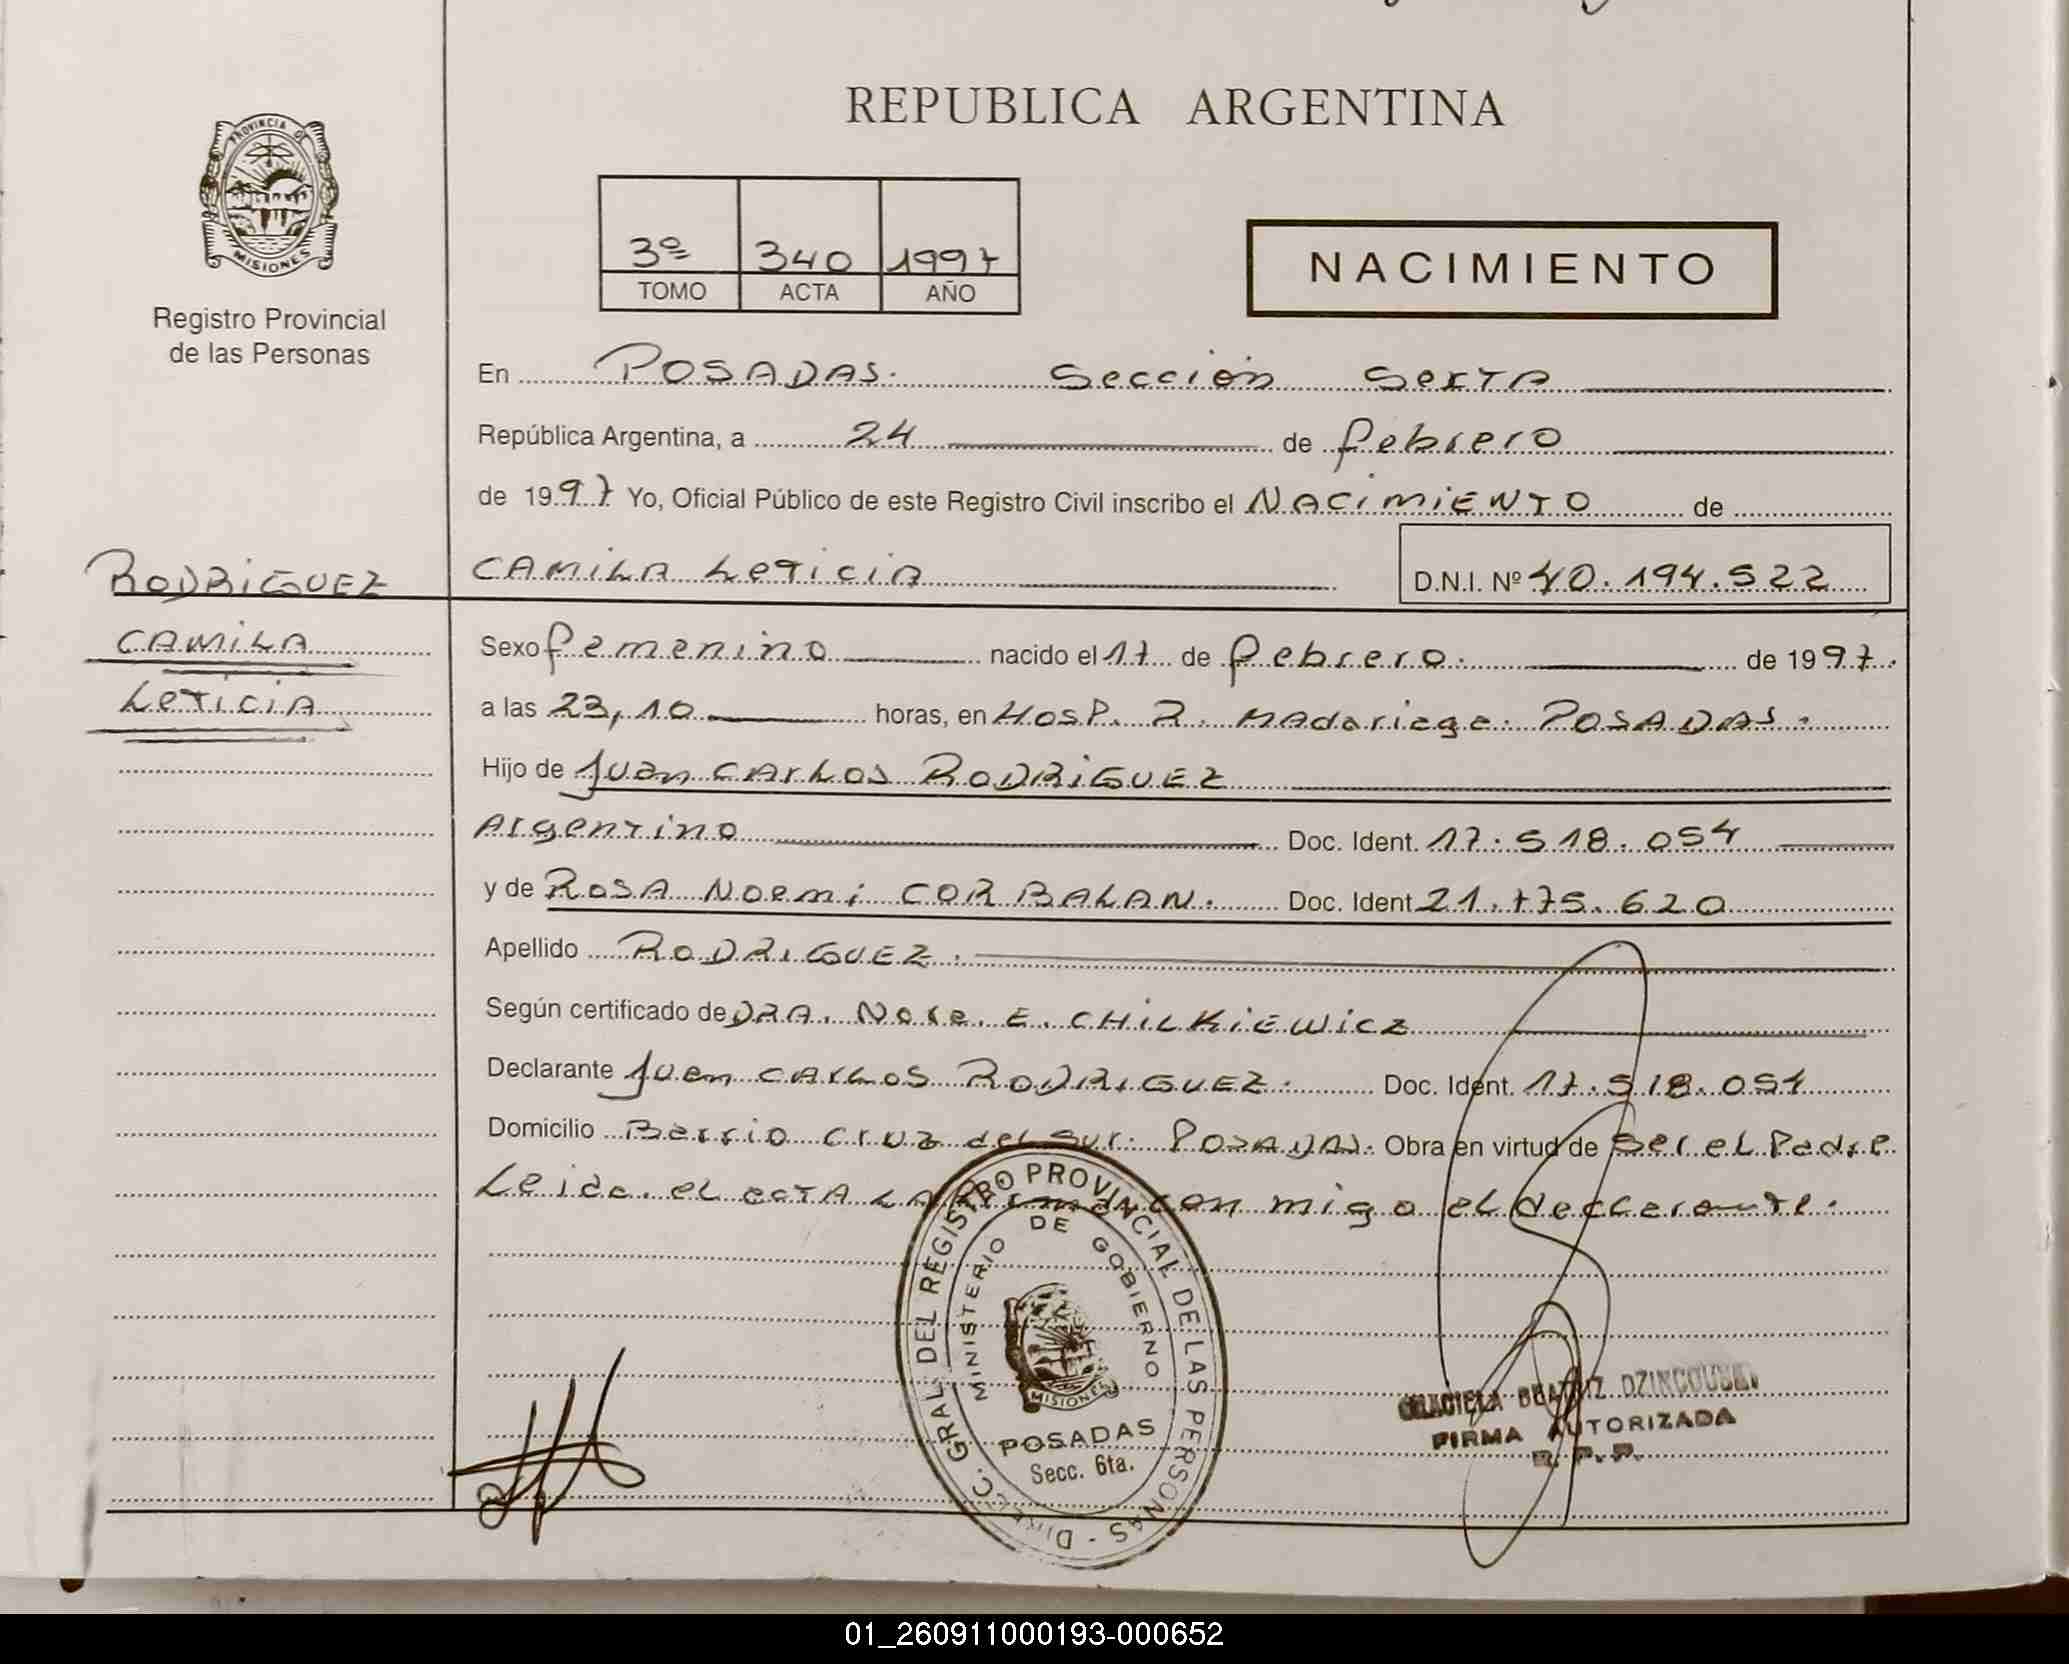 REPUBLICA ARGENTINA
PROVINCIA DE
MISIONES
Registro Provincial
de las Personas
3º 340 1997
TOMO ACTA AÑO
NACIMIENTO
En POSADAS. Sección SexTA
República Argentina, a 24 de febrero
de 1997 Yo, Oficial Público de este Registro Civil inscribo el NACIMIENTO de
RODRIGUEZ CAMILA LETICIA D.N.I. Nº 40.194.522
CAMILA
LETICIA
Sexo femenino nacido el 17 de febrero. de 1997.
a las 23,10 horas, en Hosp. R. Madariaga. POSADAS.
Hijo de Juan CARLOS RODRIGUEZ
Argentino Doc. Ident. 17.518.054
y de ROSA Noemi CORBALAN. Doc. Ident 21.775.620
Apellido RODRIGUEZ.
Según certificado de DRA. Nora. E. CHILKIEWICZ
Declarante Juan CARLOS RODRIGUEZ. Doc. Ident. 17.518.054
Domicilio Barrio Cruz del Sur. POSADAS. Obra en virtud de ser el Padre
Leida el acTA LA firma con migo el declarante.
DIREC. GRAL. DEL REGISTRO PROVINCIAL DE LAS PERSONAS -
MINISTERIO DE GOBIERNO
MISIONES
POSADAS
Secc. 6ta.
GRACIELA BEATRIZ
FIRMA AUTORIZADA
R. P. P.
01_260911000193-000652